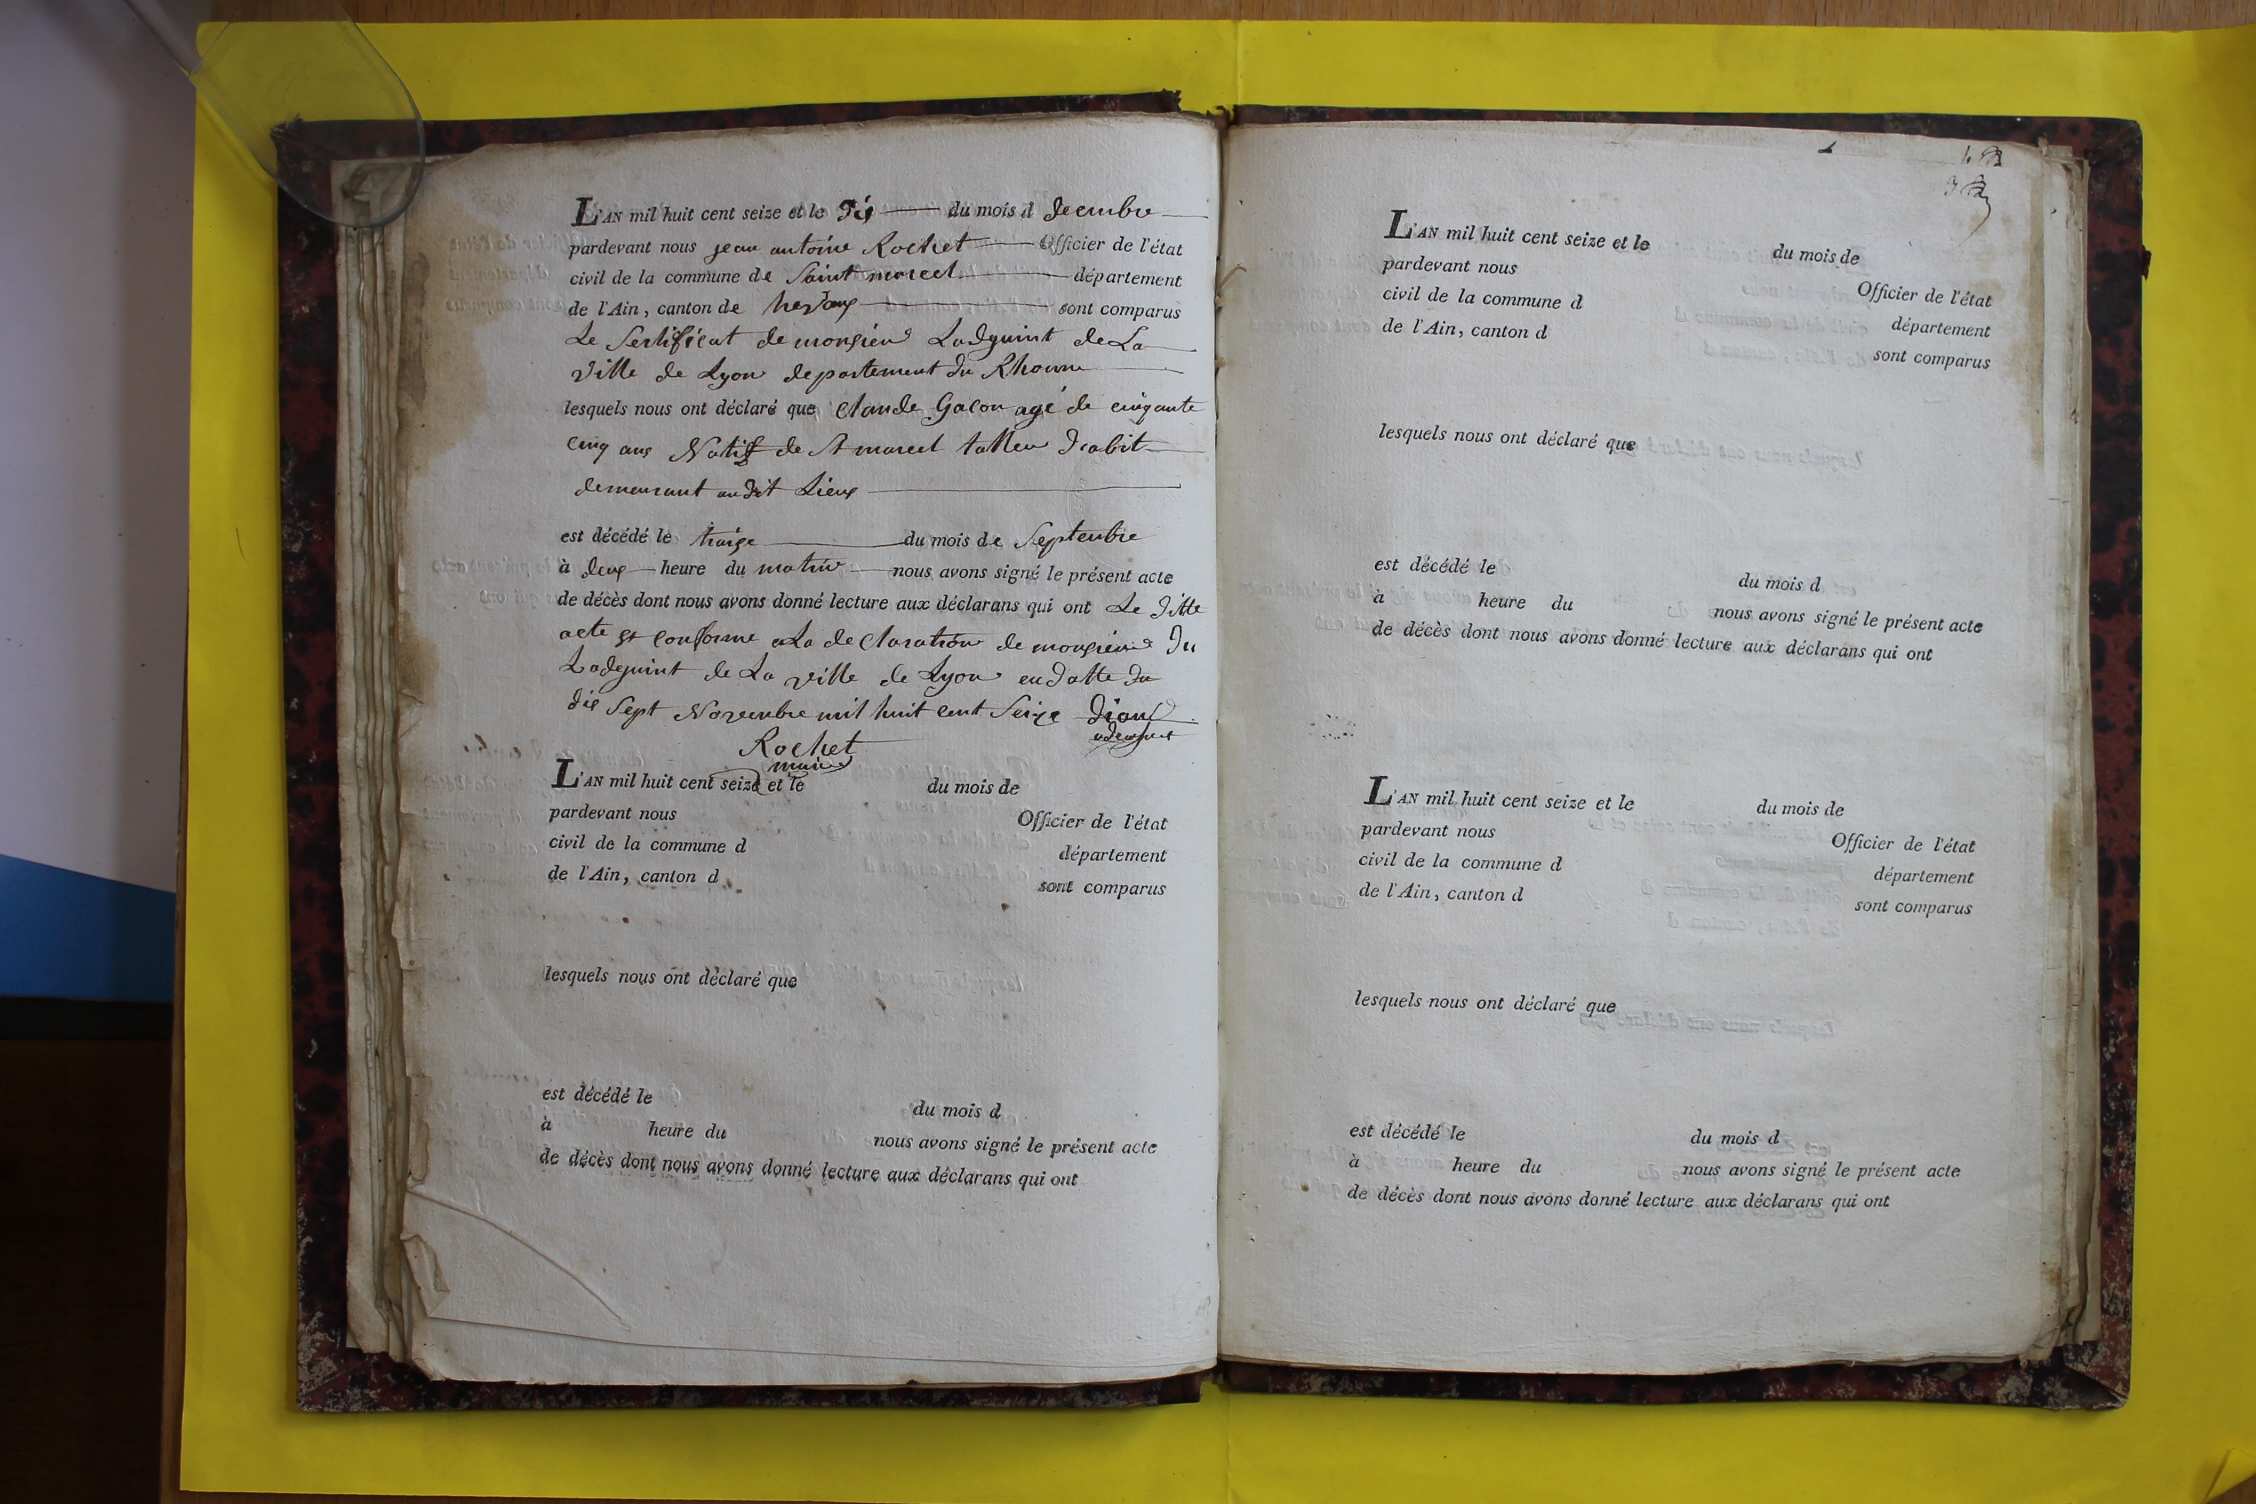 L'AN mil huit cent seize et le Dix du mois d Decembre
pardevant nous jean antoine Rochet Officier de l'état
civil de la commune de Saint marcel département
de l'Ain, canton de sont comparus
Le Sertificat de monsieur Ladguint de La
ville de Lyon departement du Rhonne
lesquels nous ont déclaré que claude Gacon agé de cinqante
cinq ans Natif de St marcel talleur d'abit
demeurant audit Lieux
est décédé le traize du mois de Septenbre
à deux heure du matin nous avons signé le présent acte
de décès dont nous avons donné lecture aux déclarans qui ont Le ditte
acte est conforme a La declaration de monsieur Du
Ladguint de La ville de Lyon en datte du
dix Sept Novenbre mil huit cent Seize
Rochet
maire
L'AN mil huit cent seize et le du mois de
pardevant nous Officier de l'état
civil de la commune d département
de l'Ain, canton d sont comparus
lesquels nous ont déclaré que
est décédé le du mois d
à heure du nous avons signé le présent acte
de décès dont nous avons donné lecture aux déclarans qui ont
L'AN mil huit cent seize et le du mois de
pardevant nous Officier de l'état
civil de la commune d département
de l'Ain, canton d sont comparus
lesquels nous ont déclaré que
est décédé le du mois d
à heure du nous avons signé le présent acte
de décès dont nous avons donné lecture aux déclarans qui ont
L'AN mil huit cent seize et le du mois de
pardevant nous Officier de l'état
civil de la commune d département
de l'Ain, canton d sont comparus
lesquels nous ont déclaré que
est décédé le du mois d
à heure du nous avons signé le présent acte
de décès dont nous avons donné lecture aux déclarans qui ont